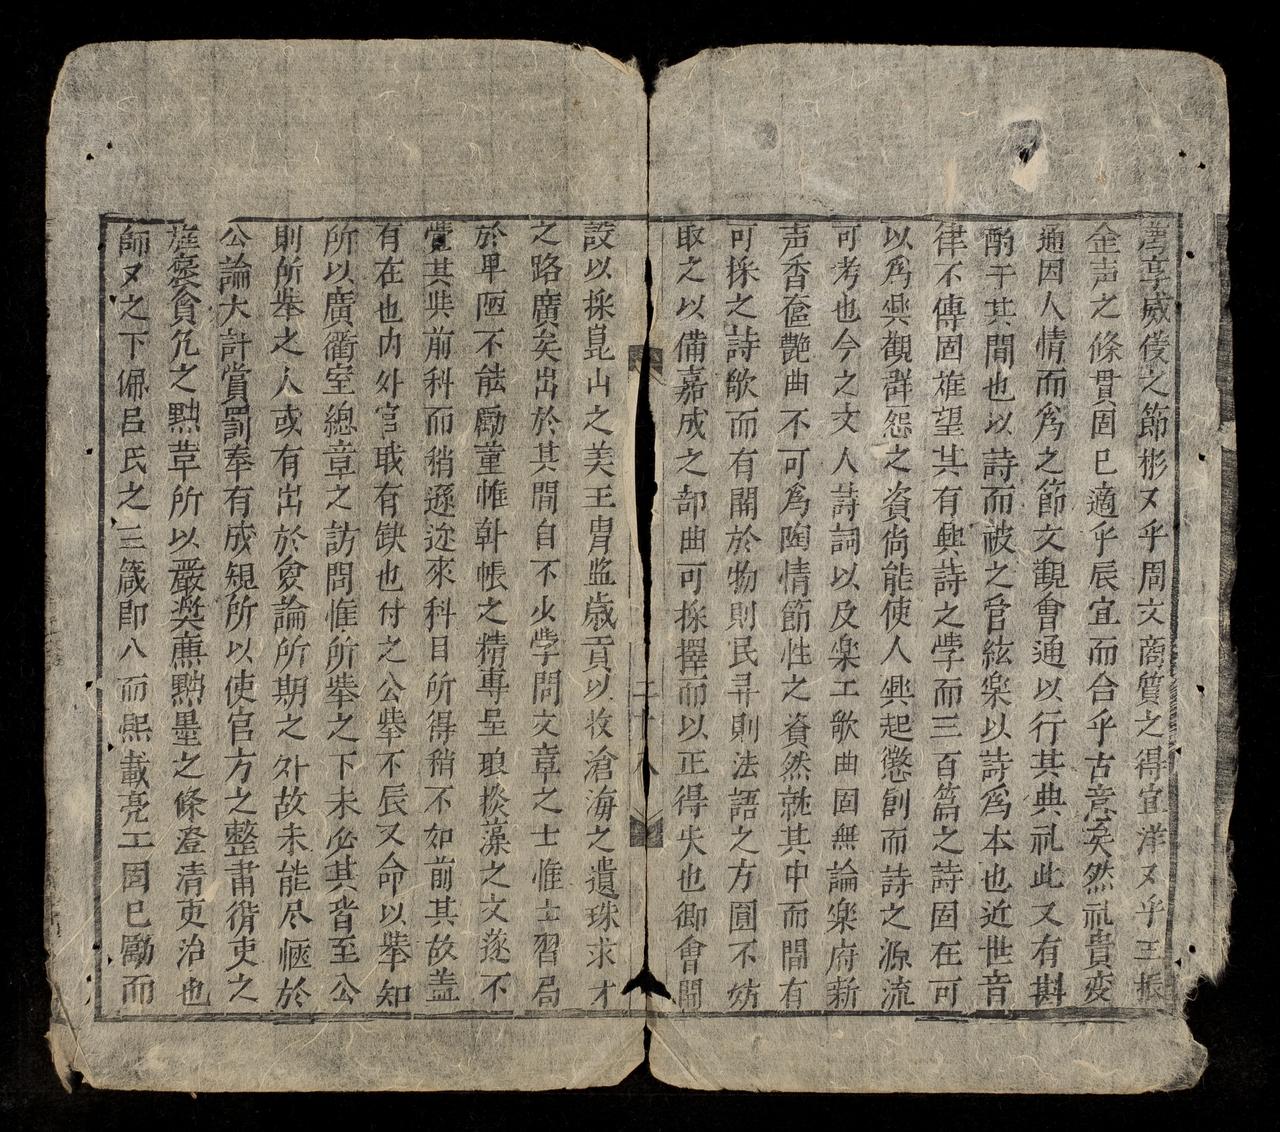 享威儀之節彬〻乎周文商質之得宜洋〻乎王振
金声之條貫固已適乎辰宜而合乎古意矣然礼貴变
通因人情而為之節文觀會通以行其典礼此又有斟
酌于其間也以詩而被之管絃楽以詩為本也近世音
律不傳固难望其有興詩之斈而三百篇之詩固在可
以為興觀群怨之資尚能使人興起懲創而詩之源流
可考也今之文人詩詞以及楽工歌曲固無論楽府新
声香奩艶曲不可為陶情節性之資然就其中而間有
可採之詩歌而有關於物則民彛則法語之方圓不妨
取之以備嘉成之部曲可採擇而以正得失也御會開
二十八
設以採崑山之美王胄监歳貢以收滄海之遺珠求才
之路廣矣出於其間自不少斈問文章之士惟士習局
於卑陋不能勵董帷斡帳之精專呈琅掞藻之文遂不
覺其與前科而稍遜迩來科目所得稍不如前其故盖
有在也内外官职有缺也付之公舉不辰又命以舉知
所以廣衢室總章之訪問惟所舉之下未必其皆至公
則所舉之人或有出於僉論所期之外故未能尽愜於
公論大計賞罰奉有成規所以使官方之整肅徃吏之
旌褒貪冗之黜革所以嚴奨廉黜墨之條澄清吏治也
師〻之下佩吕氏之三箴即八而熙載亮工固已勵而